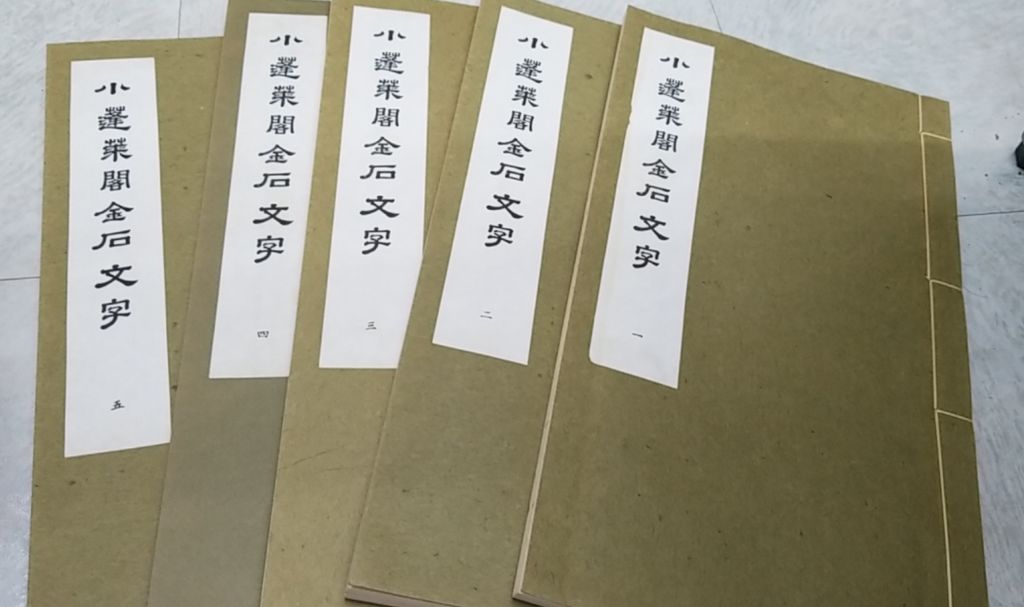 小蓬萊閣金石文字
一
小蓬萊閣金石文字
二
小蓬萊閣金石文字
三
小蓬萊閣金石文字
四
小蓬萊閣金石文字
五